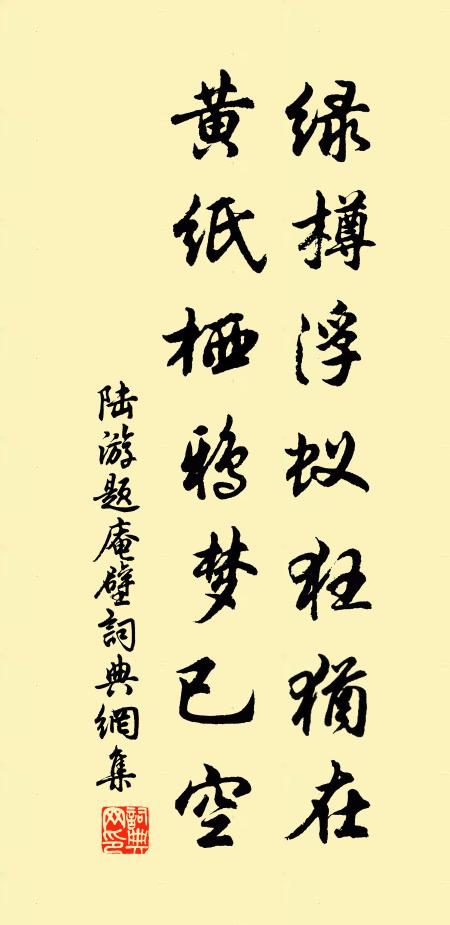 绿樽浮蚁狂犹在
黄纸栖鸦梦已空
陆游题庵壁詞典網集
詞典网印